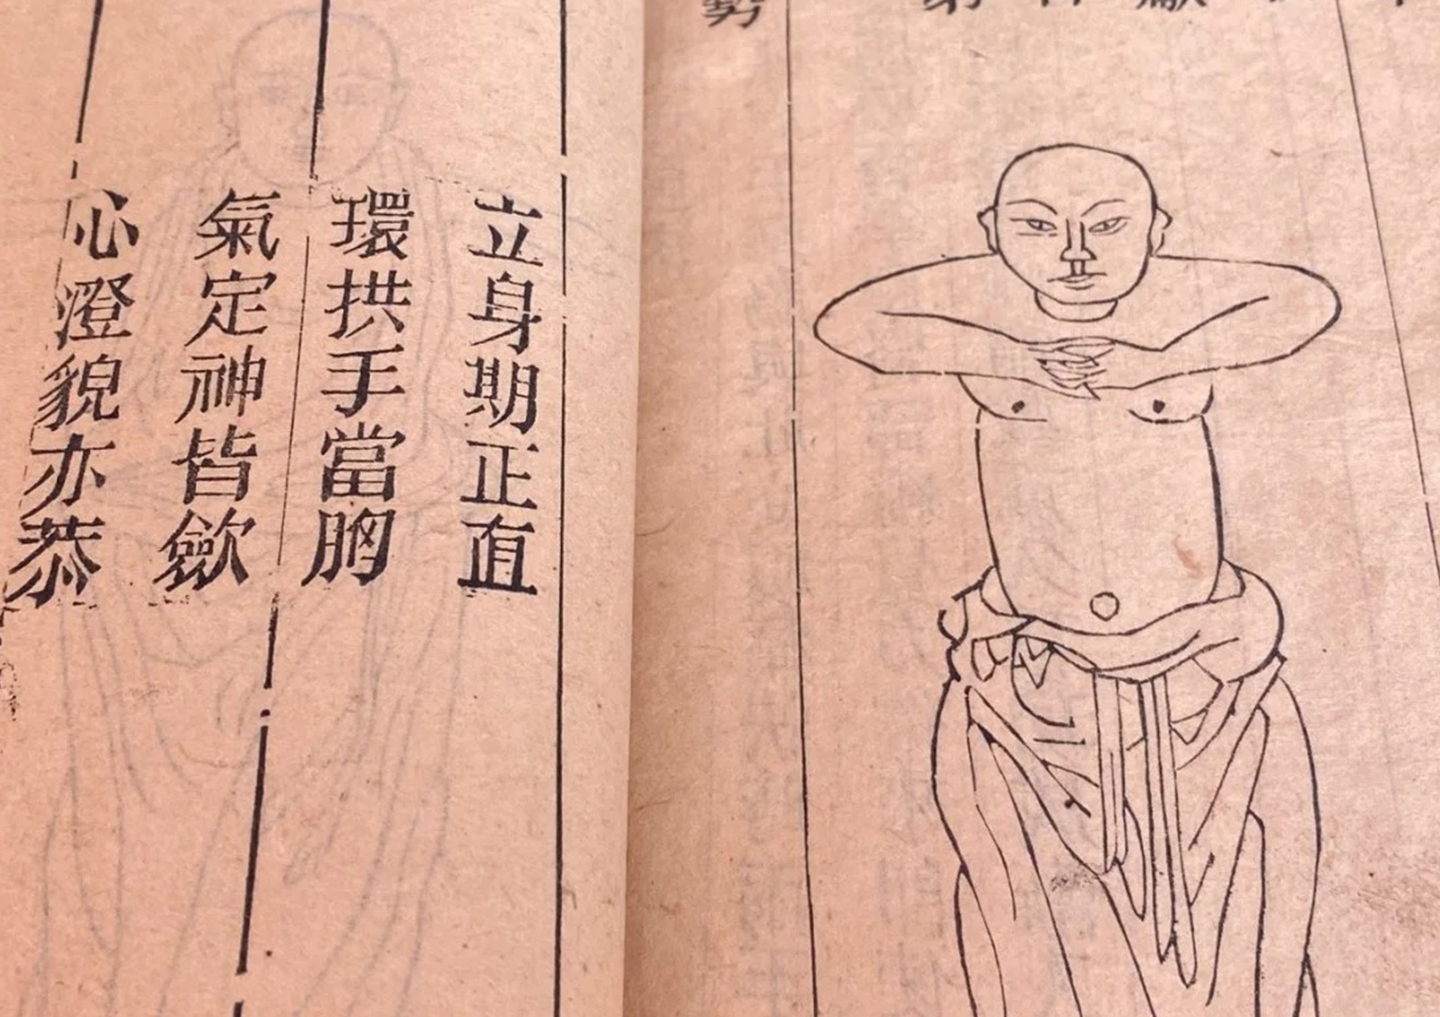 勢
立身期正直
環拱手當胸
氣定神皆歛
心澄貌亦恭